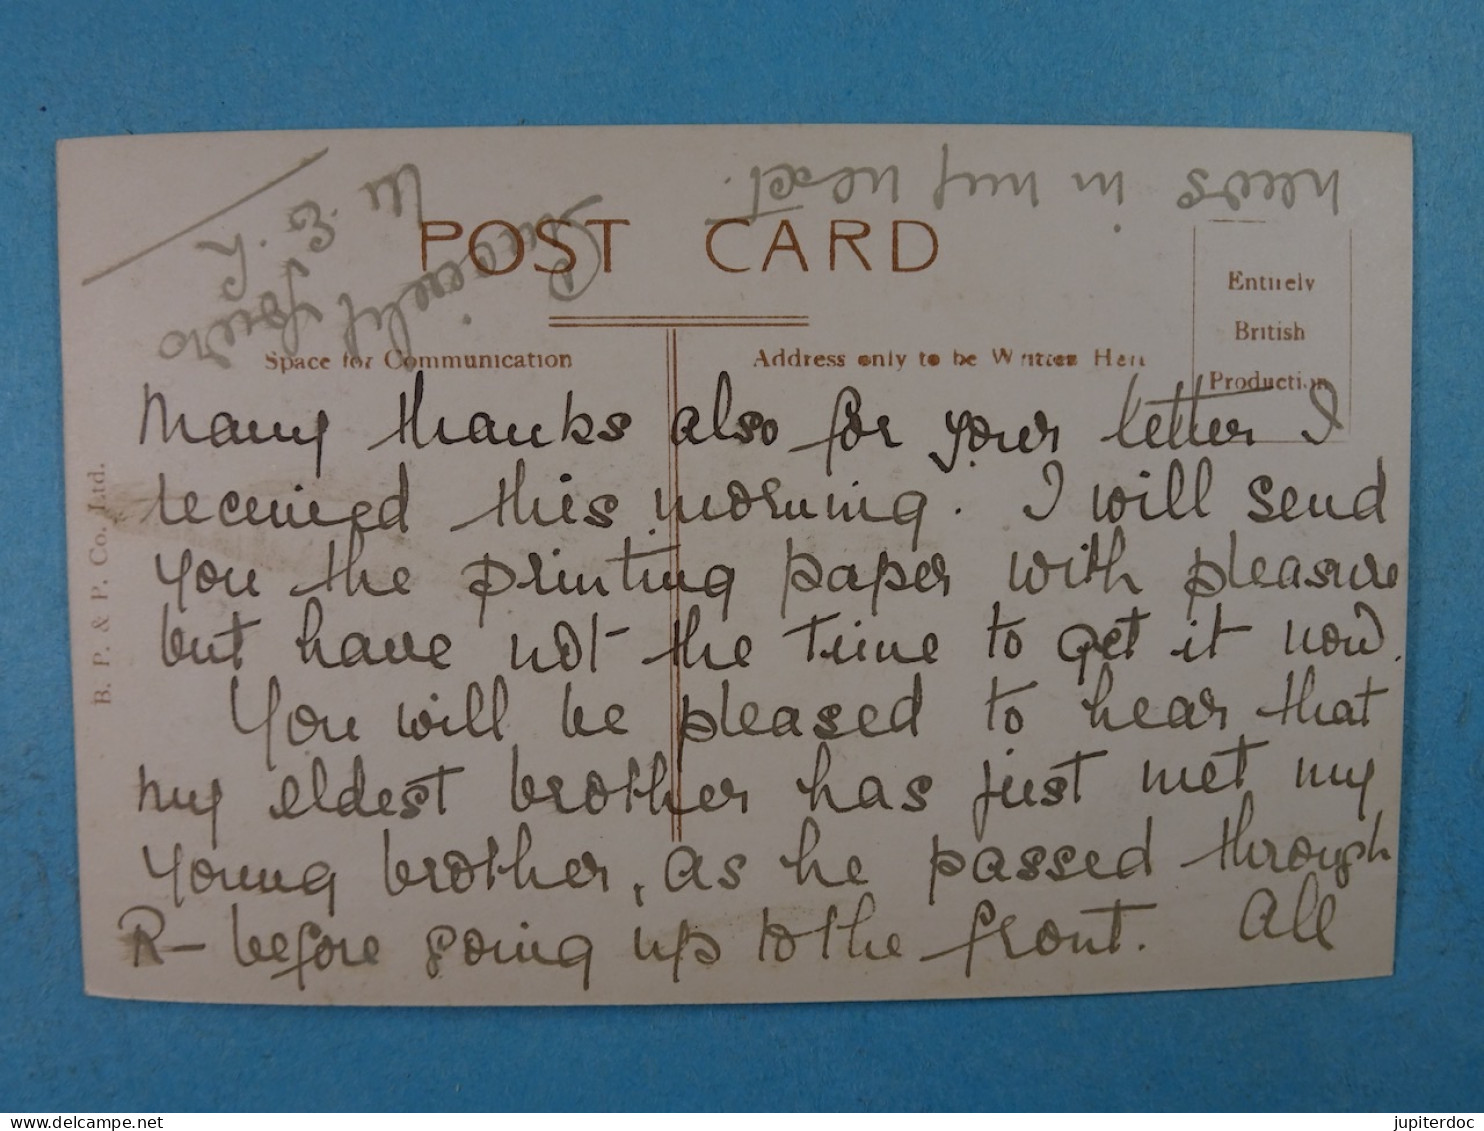 POST CARD
Space for Communication
Address only to be Written Here
Entirely
British
Production
B. P. & P. Co. Ltd.
Many thanks also for your letter I
received this morning. I will send
you the printing paper with pleasure
but have not the time to get it now.
You will be pleased to hear that
my eldest brother has just met my
young brother, as he passed through
R— before going up to the front. All
news in my next.
yours
jupiterdoc